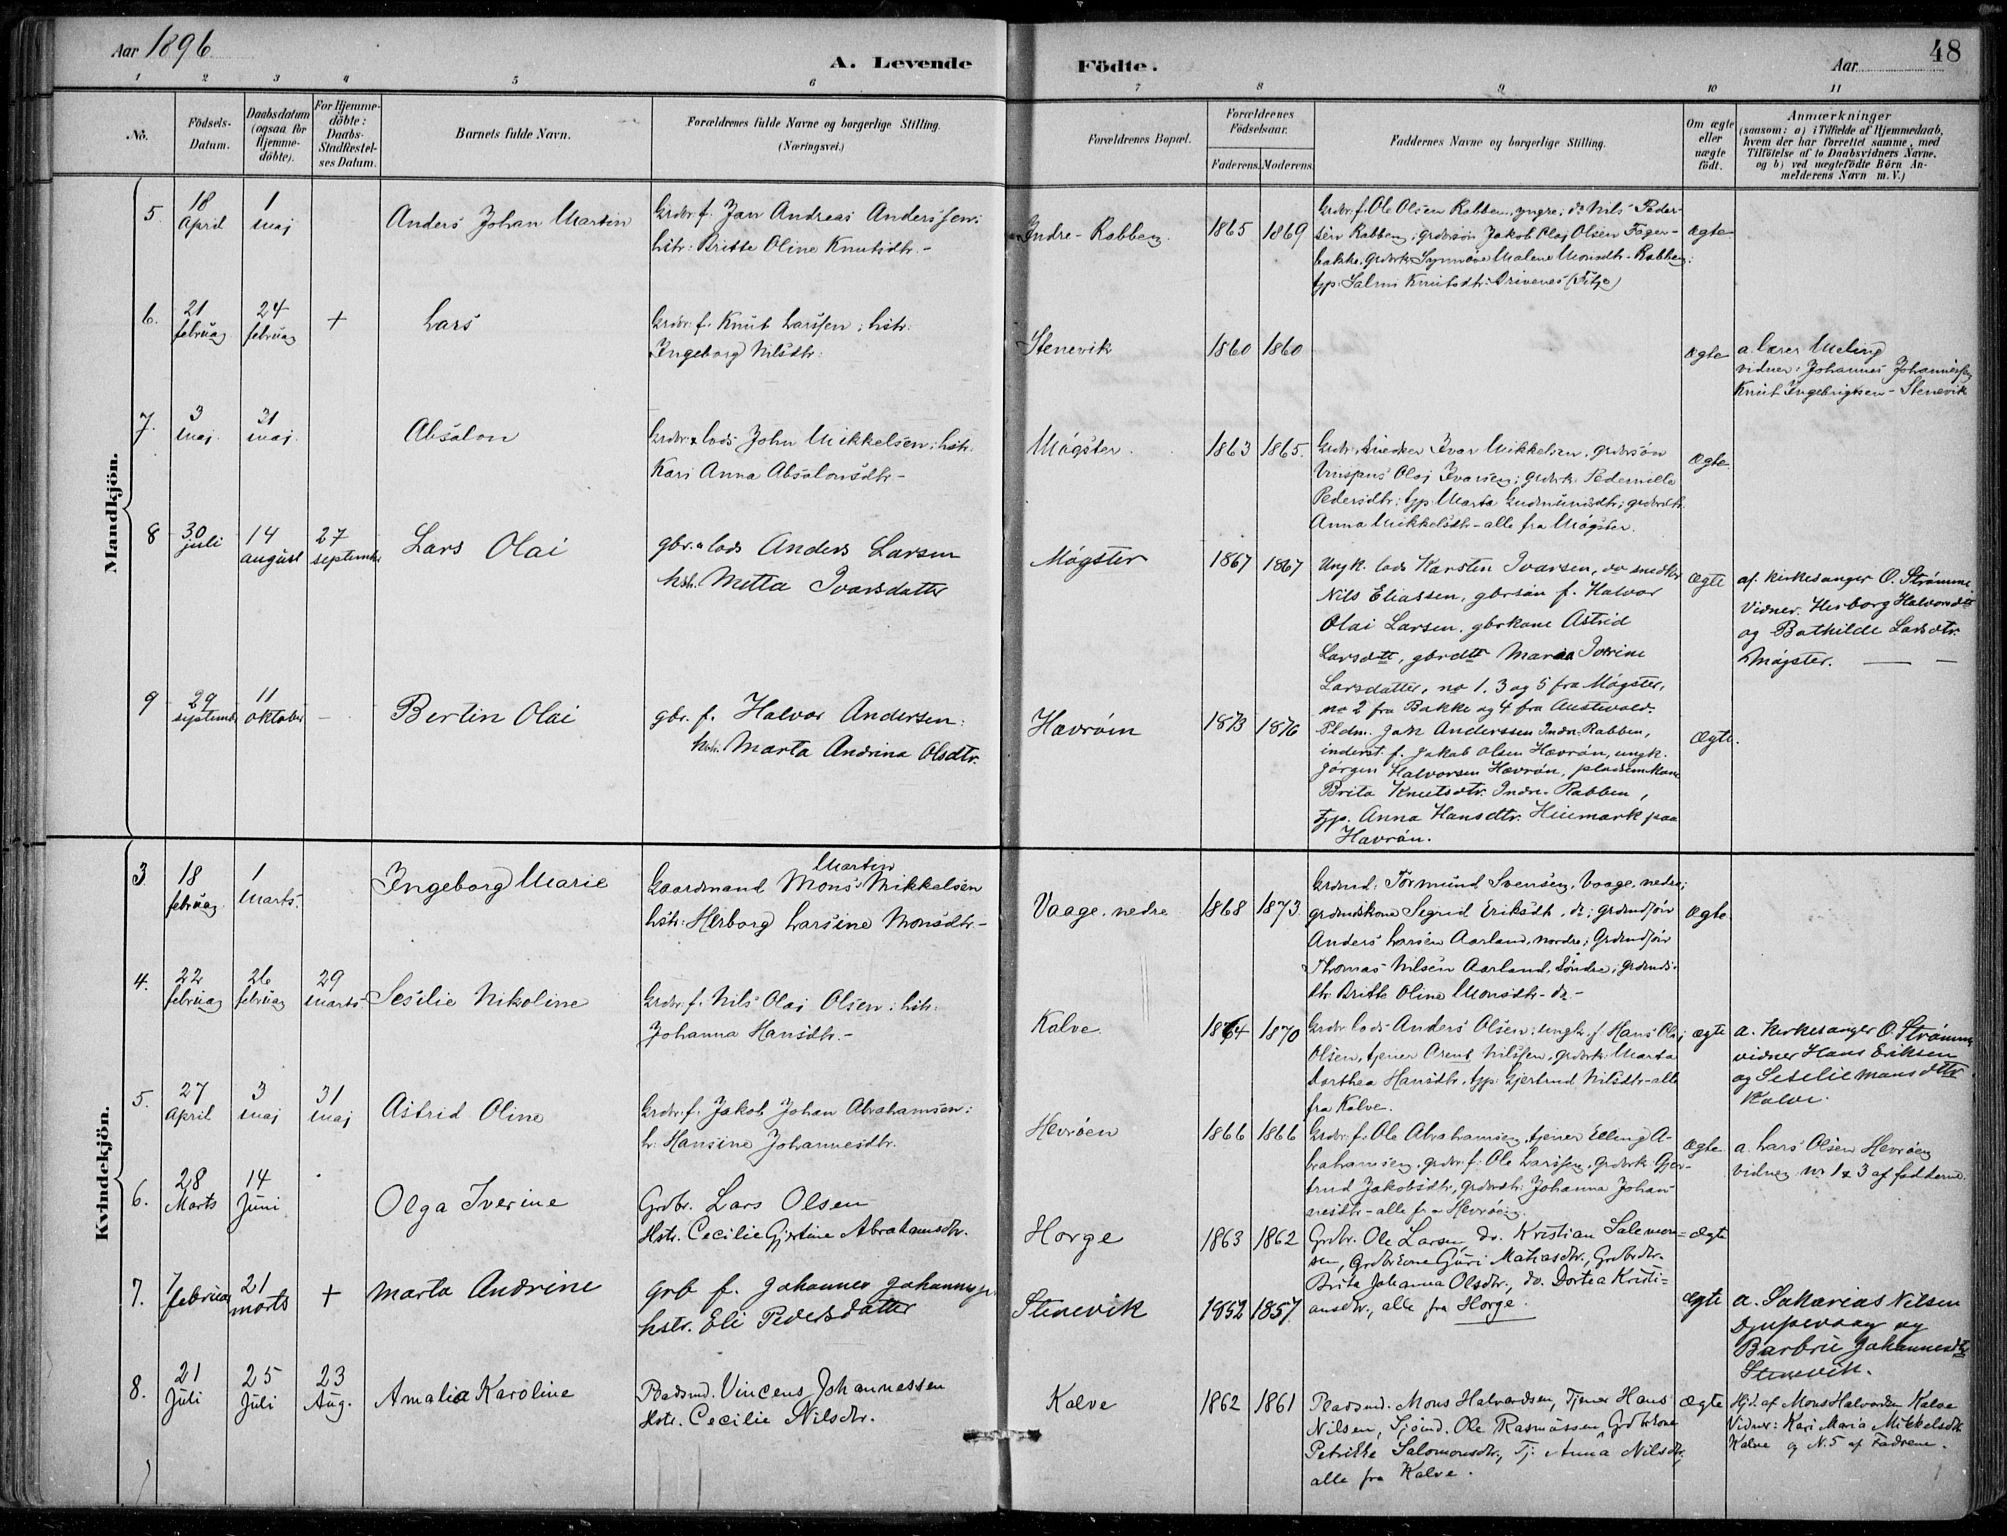 Aar 1896
A. Levende Födte.
Aar
48
1 2 3 4 5 6 7 8 9 10 11
No.
Födsels-Datum.
Daabsdatum (ogsaa for Hjemme-döbte).
For Hjemme-döbte: Daabs-Stadfæstelses Datum.
Barnets fulde Navn.
Forældrenes fulde Navne og borgerlige Stilling. (Næringsvei.)
Forældrenes Bopæl.
Forældrenes Födselsaar.
Faderens. Moderens.
Faddernes Navne og borgerlige Stilling.
Om ægte eller uægte födt.
Anmærkninger
(saasom: a) i Tilfælde af Hjemmedaab, hvem der har forrettet samme, med Tilföielse af to Daabsvidners Navne, og b) ved uægtefödte Börn Anmelderens Navn m. V.)
Mandkjön.
5. 18 April 1 maj Anders Johan Martin
Grdbr. f. Jan Andreas Anderssen;
hstr: Britte Oline Knutsdtr.-
Indre-Rabben. 1865 1869
Grdbr. f. Ole Olsen Rabben, yngre; do Nils Peder-
sen Rabben; grdbrsøn Jakob Olaj Olsen Fager-
bakke, grdbrk. Synnøve Malene Monsdtr. Rabben;
typ. Salmi Knutsdtr. Drivenes (Fitje)
Ægte
6. 21 februar 24 februar + Lars
Grdbr. f. Knut Larssen; hstr.
Ingeborg Nilsdtr.
Stenevik 1860 1860
Ægte
a. lærer Meling
vidner: Johannes Johannessen
Knut Ingebrigtsen - Stenevik
7. 3 maj. 31 maj. Absalon
Grdbr. & lods John Mikkelsen; hstr.
Kari Anna Absalonsdtr-
Møgster. 1863 1865.
Grdbr. snedker Ivar Mikkelsen, grdbrsøn
Olaj Ivarsen; grdbrk. Pedernille
Pedersdtr; typ. Marta Gudmundsdtr; grdbrdtr.
Anna Mikkelsdtr - alle fra Møgster.
Ægte.
8 30 juli 14 august 27 september Lars Olai
gbr. & lods Anders Larsen
hst. Metta Ivarsdatter
Møgster 1867 1867
Ungk. lods Karsten Ivarsen, do snedker
Nils Eliassen, gbrsøn f. Halvor
Olai Larsen, gbrkone Astrid
Larsdtt, gbrdtt Maria Iverine
Larsdatter, no 1, 3 og 5 fra Møgster,
no 2 fra Bakke og 4 fra Austvold.
Ægte
af. Kirkesanger O. Strømme.
Vidner. Herborg Halvorsdtr
og Bathilde Larsdtr.
Møgster.
9 29 september 11 oktober - Bertin Olai
gbr. f. Halvor Andersen:
hstr. Marta Andrina Olsdtr.
Havrøin 1873 1876
Pldm. Jan Anderssen Indre-Rabben,
inderst. f. Jakob Olsen Hævrøn, ungk.
Jørgen Halvorsen Hævrøn, pladsemkone
Brita Knutsdtr. Indre-Rabben,
typ. Anna Hansdtr. Hiimark paa
Havrøn.
Ægte.
Kvindekjön.
3 18 februar 1 Marts. Ingeborg Marie
Martin
Gaardmand Mons Mikkelsen
hstr: Herborg Larsine Monsdtr.-
Vaage. nedre 1868 1873.
Grdmd: Tormund Svensen, Vaage. nedre;
grdmdskone Segrid Eriksdtr, do; grdmdsøn
Anders Larsen Aarland, nordre; Grdmdsøn
Thomas Nilsen Aarland, søndre; grdmds-
dtr. Britte Oline Monsdtr - do -
Ægte
4. 22 februar 26 februar 29 marts - Sesilie Nikoline
Grdbr. f. Nils Olaj Olsen; hstr.
Johanna Hansdtr.-
Kalve. 1864 1870
Grdbr. lods Anders Olsen; ungk. f. Hans Olaj
Olsen, tjener Arent Nilssen, grdbrk: Marta
Dorthea Hansdtr, typ. Gjertrud Nilsdtr - alle
fra Kalve.
ægte
a. Kirkesanger O. Strømme
vidner Hans Eriksen
og Sesilie Monsdtr
Kalve.
5. 27 April 3 maj 31 maj Astrid Oline
Grdbr. f. Jakob Johan Abrahamsen;
h. Hansine Johannesdtr.
Hevrøen 1866 1866
Grdbr. f. Ole Abrahamsen, tjener Elling A-
brahamsen, grdbr. f. Ole Larssen, grdbrk. Gjer-
trud Jakobsdtr, grdbrdtr. Johanna Johan-
nesdtr - alle fra Hevrøen.
Ægte
a. Lars Olsen Hevrøen
vidner nr 1 & 3 af fadderne.
6. 28 Marts 14 Juni Olga Iverine
Grdbr. Lars Olsen
Hstr. Cecilie Gjertine Abrahamsdtr.
Horge 1863 1862
Grdbr. Ole Larsen, do. Kristian Salemon-
sen, Grdbrkone Guri Matiasdtr, Grdbrdtr.
Brita Johanna Olsdtr, do. Dortea Kristi-
ansdtr, alle fra Horge.
ægte
7. 7 februar 21 marts + Marta Andrine
grb f. Johannes Johannessen
hstr. Eli Pedersdatter
Stenevik 1852 1857.
Ægte
a. Sakarias Nilsen
Djupevaag og
Barbru Johannesdtr
Stenevik.
8. 21 Juli 25 Juli 23 Aug. Amalia Karoline
Pladsmd. Vincens Johannessen
Hstr. Cecilie Nilsdtr.
Kalve 1862 1861
Pladsmd. Mons Halvardsen, Tjener Hans
Nilsen, Sjömd. Ole Rasmussen, Grdbrkone
Petrikke Salomonsdtr, Tj. Anna Nilsdtr,
alle fra Kalve.
Ægte
Hjd. af Mons Halvardsen Kalve
Vidner: Kari Maria Mikkelsdtr
Kalve og N. 5 af Fadrene.